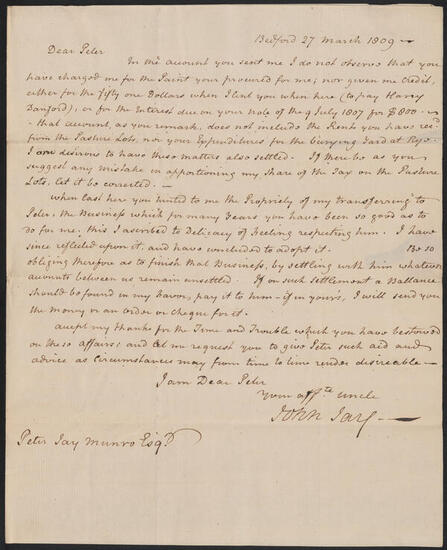 Bedford 27 March 1809 —
Dear Peter
In the account you sent me I do not observe that you
have charged me for the Paint your procured for me; nor given me Credit,
either for the Fifty one Dollars which I lent you when here (to pay Harry
Danford), or for the Interest due on your Note of the 9 July 1807 for $800 —
— that account, as you remark, does not include the Rents you have recd.
from the Pasture Lots, nor your Expenditures for the burying yard at Rye.
I am desirous to have these matters also settled. If there be as you
suggest any mistake in apportioning my share of the Tax on the Pasture
Lots, let it be corrected. —
when last here you hinted to me the Propriety of my transferring to
Peter, the Business which for many years you have been so good as to
do for me: this I ascribed to Delicacy of Feeling respecting him. I have
since reflected upon it, and have concluded to adopt it. Be so
obliging therefore as to finish that Business, by settling with him whatever
accounts between us remain unsettled. If on such settlement a Ballance
should be found in my favor, pay it to him — if in yours, I will send you
the money or an order or cheque for it.
accept my thanks for the Time and Trouble which you have bestowed
on these affairs; and let me request you to give Peter such aid and
advice as circumstances may from time to time render desireable —
I am Dear Peter
Your affte. uncle
John Jay —
Peter Jay Munro Esqr.